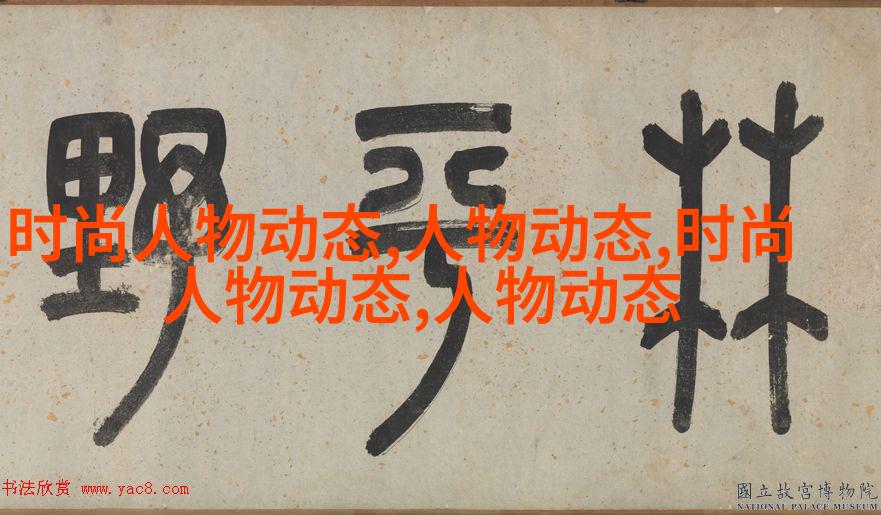 林平野
时尚人物动态,人物动态,时尚
人物动态,人物动态
书法欣赏 www.yac8.com
國立故宮博物院
NATIONAL PALACE MUSEUM